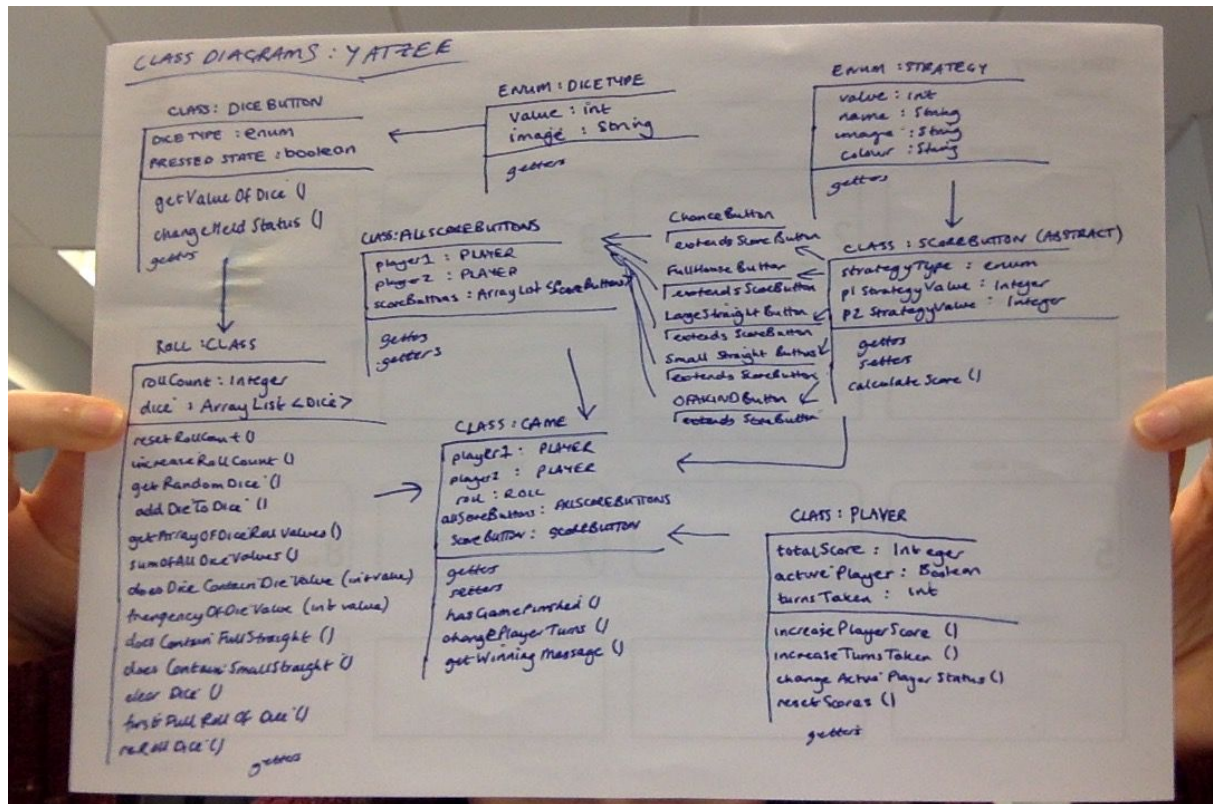 CLASS DIAGRAMS : YATZEE
CLASS: DICE BUTTON
DICE TYPE : enum
PRESSED STATE : boolean
getValue Of Dice ()
changeHeld Status ()
getters
ENUM : DICETYPE
value : int
image : String
getters
ENUM : STRATEGY
value : int
name : String
image : String
colour : String
getters
CLASS: ALLSCOREBUTTONS
player1 : PLAYER
player2 : PLAYER
scoreButtons : ArrayList <ScoreButtons>
getters
getters
ChanceButton
extends ScoreButton
FullHouse Button
extends ScoreButton
LargeStraight Button
extends ScoreButton
Small Straight Button
extends ScoreButton
OFAKIND Button
extends ScoreButton
CLASS : SCOREBUTTON (ABSTRACT)
strategyType : enum
p1 StrategyValue : Integer
P2 StrategyValue : Integer
getters
setters
calculateScore ()
ROLL : CLASS
rollCount : Integer
dice : ArrayList <Dice>
reset RollCount ()
increaseRoll Count ()
get Random Dice ()
add DieTo Dice ()
getArrayOfDiceRoll values ()
sumOfAll Dice Values ()
does Dice Contain Die Value (int value)
frengencyOfDie Value (int value)
does Contain FullStraight ()
does Contain SmallStraight ()
clear Dice ()
first Full Roll Of Dice ()
reRoll Dice ()
getters
CLASS : GAME
player1 : PLAYER
player2 : PLAYER
roll : ROLL
allScoreButtons : ALLSCOREBUTTONS
Score BUTTON : SCOREBUTTON
getters
setters
hasGameFinished ()
changePlayer Turns ()
getWinning Message ()
CLASS : PLAYER
totalScore : Integer
active Player : Boolean
turnsTaken : int
increasePlayerScore ()
increaseTurnsTaken ()
change Active Player Status ()
resetScores ()
getters